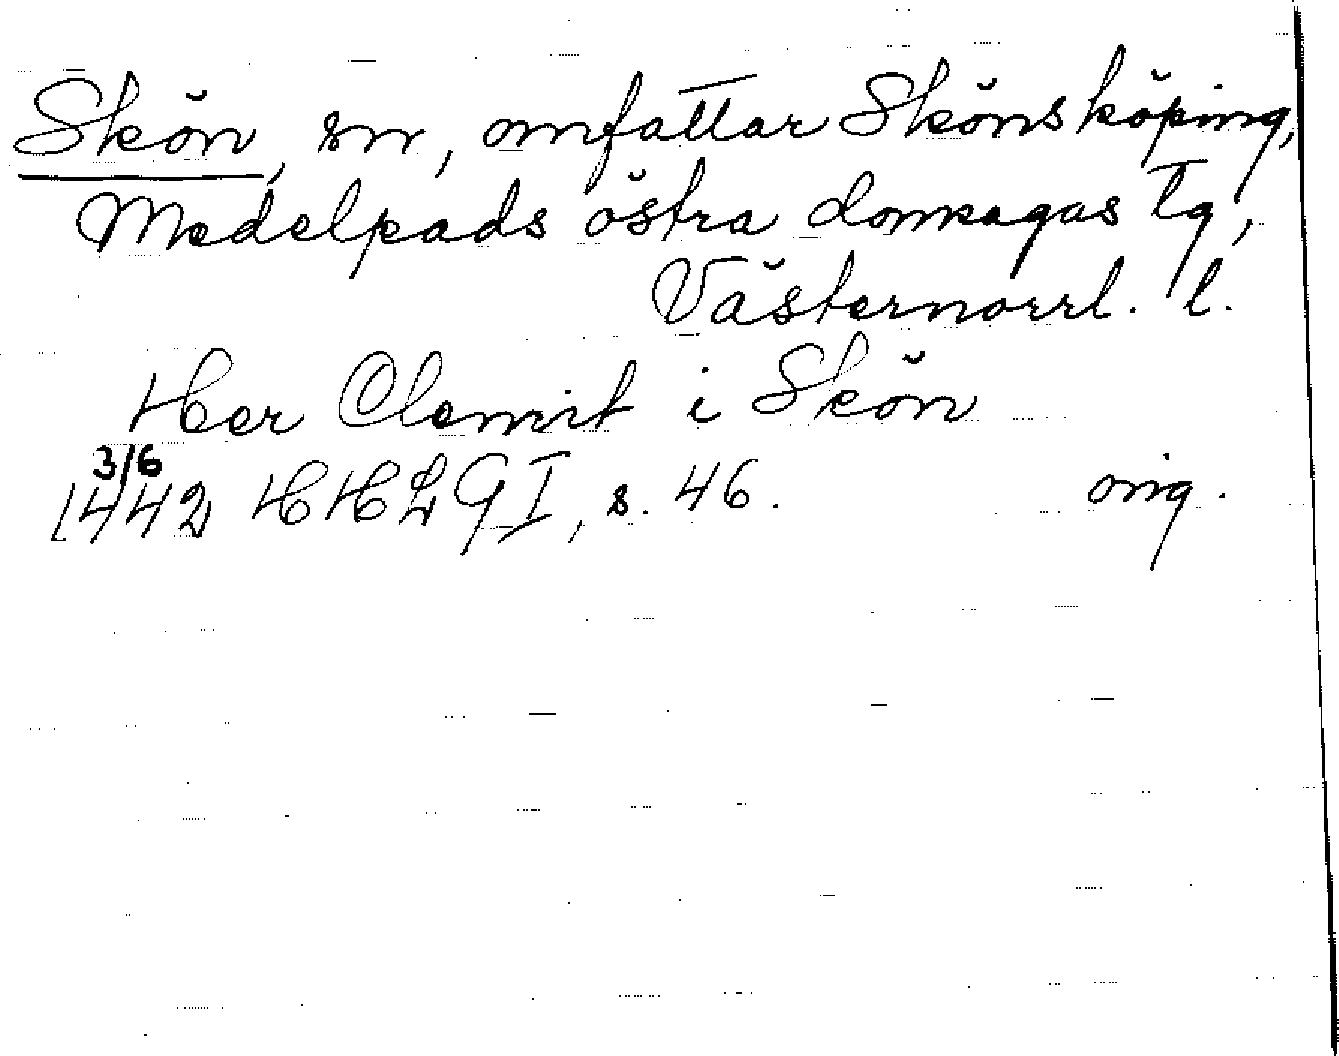 Skön, sn, omfattar Skönsköping,
Medelpads östra domsagas tg,
Västernorrl. l.
Her Clemit i Skön
3/6
1442 HHLG I, s. 46. orig.